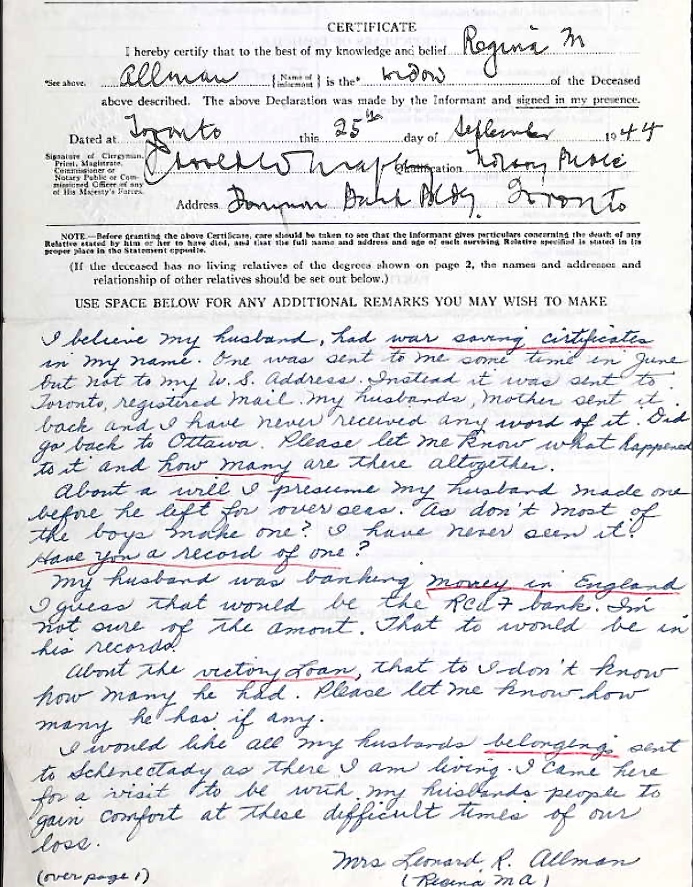 CERTIFICATE
I hereby certify that to the best of my knowledge and belief Regina M
*See above. Allman {Name of informant} is the* widow of the Deceased
above described. The above Declaration was made by the Informant and signed in my presence.
Dated at Toronto this 25th day of September 1944
Signature of Clergyman,
Priest, Magistrate,
Commissioner or
Notary Public or Com-
missioned Officer of any
of His Majesty's Forces.
Qualification Notary Public
Address Dominion Bank Bldg. Toronto
NOTE.—Before granting the above Certificate, care should be taken to see that the Informant gives particulars concerning the death of any
Relative stated by him or her to have died, and that the full name and address and age of each surviving Relative specified is stated in its
proper place in the Statement opposite.
(If the deceased has no living relatives of the degrees shown on page 2, the names and addresses and
relationship of other relatives should be set out below.)
USE SPACE BELOW FOR ANY ADDITIONAL REMARKS YOU MAY WISH TO MAKE
I believe my husband, had war saving cirtificates
in my name. One was sent to me some time in June
but not to my U.S. Address. Instead it was sent to
Toronto, registered mail. My husbands, mother sent it
back and I have never received any word of it. Did
go back to Ottawa. Please let me know what happened
to it and how many are there altogether.
About a will I presume my husband made one
before he left for over seas. As don't most of
the boys make one? I have never seen it.
Have you a record of one?
My husband was banking money in England
I guess that would be the RCAF bank. I'm
not sure of the amount. That to would be in
his records.
About the victory loan, that to I don't know
how many he had. Please let me know how
many he has if any.
I would like all my husbands belongings sent
to Schenectady as there I am living. I came here
for a visit to be with my husbands people to
gain comfort at these difficult times of our
loss.
Mrs Leonard R. Allman
(over page 1) (Regina M A)